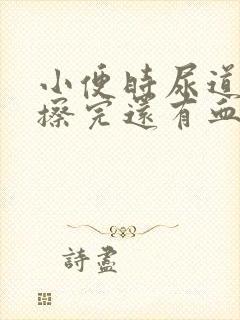 小便時尿道
擦完還有血
詩盡